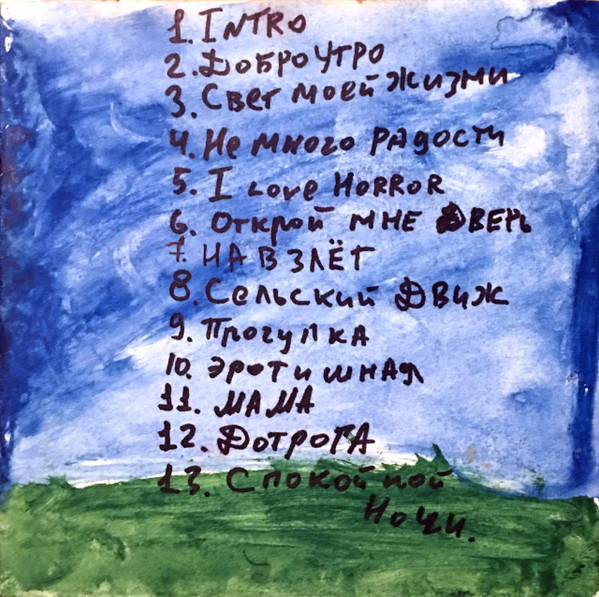 1. INTRO
2. ДОБРОУТРО
3. Свет моей жизни
4. Не много радости
5. I Love HORROR
6. Открой мне Дверь
7. НА ВЗЛЁТ
8. Сельский Движ
9. Прогулка
10. Эротишная
11. МАМА
12. ДОТРОГА
13. Спокойной
Ночи.